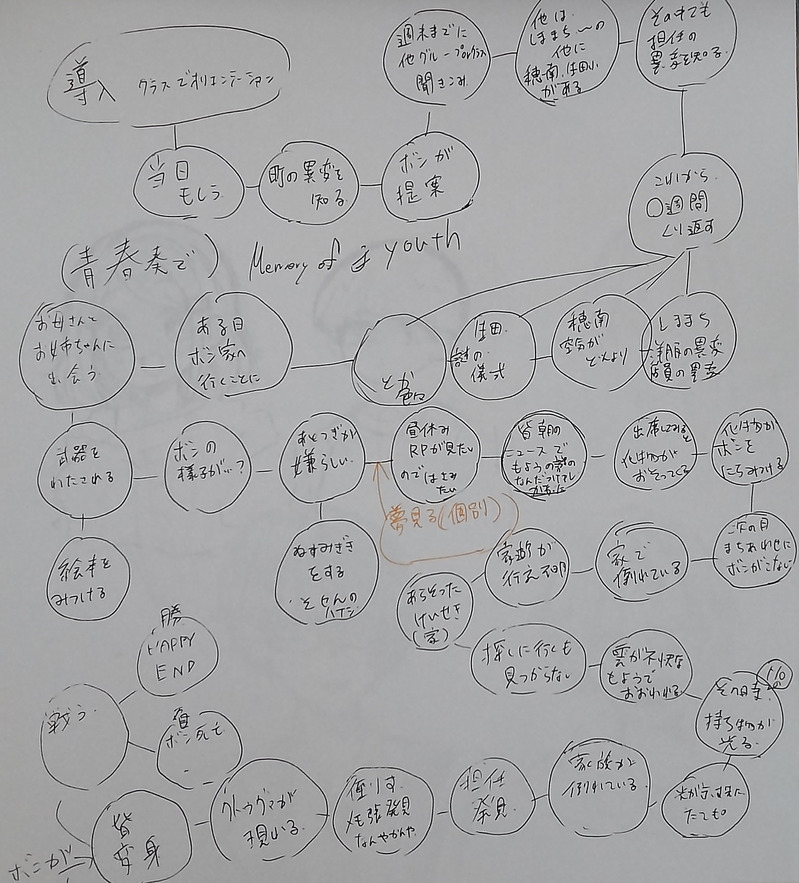 導入 クラスでオリエンテーション
当日
もしう
町の異変を
知る
ボンが
提案
週末までに
他グループのクラス
聞きこみ
他は
しまち〜の
他に
穂南、住田小
がある
その中でも
担任の
異変を知る
これから
〇週間
くり返す
(青春奏で) Memory of youth
お母さんと
お姉ちゃんに
出会う
ある日
ボン家へ
行くことに
とか
色々
住田
謎の
儀式
穂南
空気が
どんより
しまち
洋服の異変
の異変
武器を
わたされる
ボンの
様子が…?
あとつぎが
嫌らしい
昼休み
RPが見たい
のではさみ
たい
皆朝の
ニュースで
もようの
出席してみると
化け物が
おそってくる
化け物が
ボンを
にらみつける
夢見る(個別)
絵本を
みつける
ぬすみぎき
をする
そせんの
ハナシ
あらそった
けいせき
(家)
家族が
行え不明
家で
倒れている
次の日
まちあわせに
ボンがこない
勝
HAPPY
END
探しに行くも
見つからない
雲が不快な
もようで
おおわれる
その時
持ち物が
光る
戦う
負
ボン死亡
皆
変身
現れる
倒す
発見
なんやかんや
担任
発見
家族が
倒れている
たても
ボンが